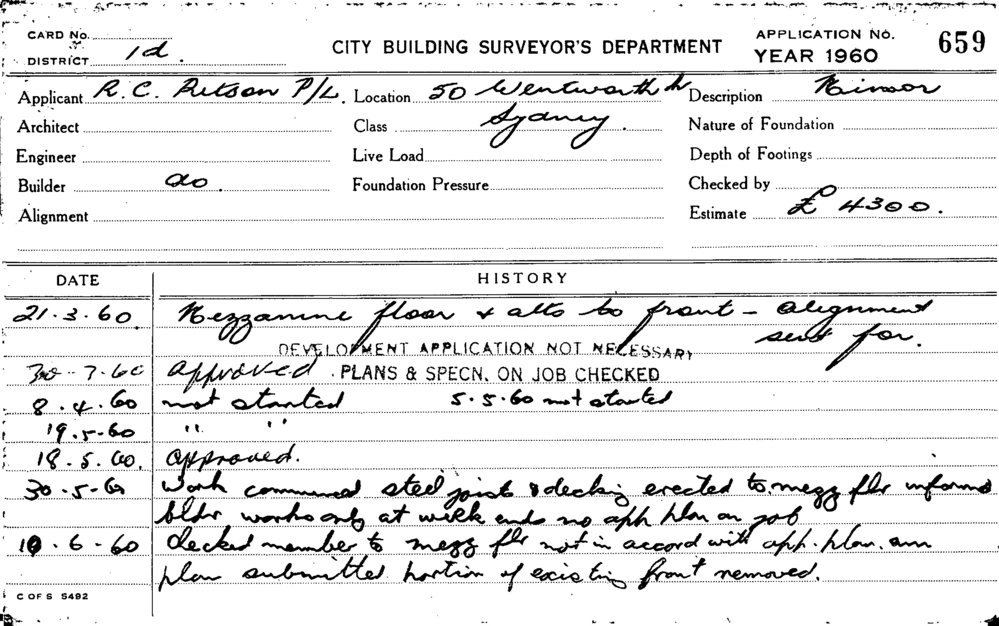 CARD No.
DISTRICT 1d.
CITY BUILDING SURVEYOR'S DEPARTMENT
APPLICATION No. 659
YEAR 1960
Applicant R.C. Ritson P/L. Location 50 Wentworth Description Minor
Architect Class Sydney. Nature of Foundation
Engineer Live Load Depth of Footings
Builder do. Foundation Pressure Checked by
Alignment Estimate £ 4300.
DATE HISTORY
21.3.60 Mezzanine floor & alts to front - alignment
sent for.
DEVELOPMENT APPLICATION NOT NECESSARY
approved. PLANS & SPECN. ON JOB CHECKED
8.4.60 not started 5.5.60 not started
19.5.60 " "
18.5.60. approved.
30.5.60 Work commenced steel joists & decking erected to mezz flr informed
bldr works only at week ends no aph plan on job
10.6.60 decked member to mezz flr not in accord with aph. plan. am
plan submitted portion of existing front removed.
C OF S 5492